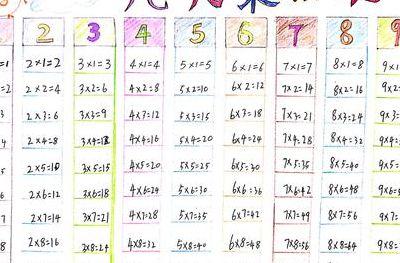 2 3 4 5 6 7 8 9
2×1=2 3×1=3 4×1=4 5×1=5 6×1=6 7×1=7 8×1=8 9×1
2×2=4 3×2=6 4×2=8 5×2=10 6×2=12 7×2=14 8×2=16 9×2
2×3=6 3×3=9 4×3=12 5×3=15 6×3=18 7×3=21 8×3=24 9×3
2×4=8 3×4=12 4×4=16 5×4=20 6×4=24 7×4=28 8×4=32 9×4
2×5=10 3×5=15 4×5=20 5×5=25 6×5=30 7×5=35 8×5=40 9×5
2×6=12 3×6=18 4×6=24 5×6=30 6×6=36 7×6=42 8×6=48 9×6
2×7=14 3×7=21 4×7=28 5×7=35 6×7=42 7×7=49 8×7=56 9×7
2×8=16 3×8=24 4×8=32 5×8=40 6×8=48 7×8=56 8×8=64 9×8